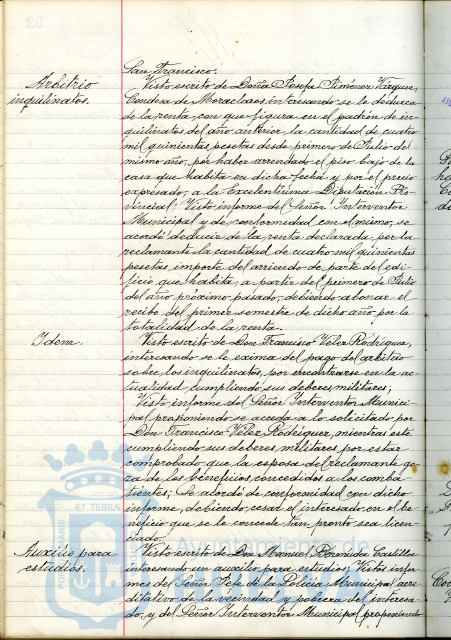 San Francisco.
Arbitrio
inquilinatos.
Visto escrito de Doña Josefa Jiménez Vázquez,
Condesa de Moraclaros, interesando se le deduzca
de la renta, con que figura en el padrón de in-
quilinatos del año anterior, la cantidad de cuatro
mil quinientas pesetas desde primero de Julio del
mismo año, por haber arrendado el piso bajo de la
casa que habita en dicha fecha y por el precio
expresado, a la Excelentísima Diputación Pro-
vincial; Visto informe del Señor Interventor
Municipal y de conformidad con el mismo, se
acordó deducir de la renta declarada por la
reclamante la cantidad de cuatro mil quinientas
pesetas importe del arriendo de parte del edi-
ficio que habita, a partir del primero de Julio
del año próximo pasado, debiendo abonar el
recibo del primer semestre de dicho año por la
totalidad de la renta.
Idem.
Visto escrito de Don Francisco Velez Rodríguez,
interesando se le exima del pago del arbitrio
sobre los inquilinatos, por encontrarse en la ac-
tualidad cumpliendo sus deberes militares;
Visto informe del Señor Interventor Munici-
pal proponiendo se acceda a lo solicitado por
Don Francisco Velez Rodríguez, mientras esté
cumpliendo sus deberes militares por estar
comprobado que la esposa del reclamante go-
za de los beneficios concedidos a los comba
tientes; Se acordó de conformidad con dicho
informe, debiendo cesar el interesado en el be-
neficio que se le concede tan pronto sea licen-
ciado.
Auxilio para
estudios.
Visto escrito de Don Manuel Bermúdez Castilla
interesando un auxilio para estudios; Vistos infor
mes del Señor Jefe de la Policía Municipal acre
ditativo de la vecindad y pobreza del interesa-
do, y del Señor Interventor Municipal proponiendo
ET TERRA
Ayuntamiento de